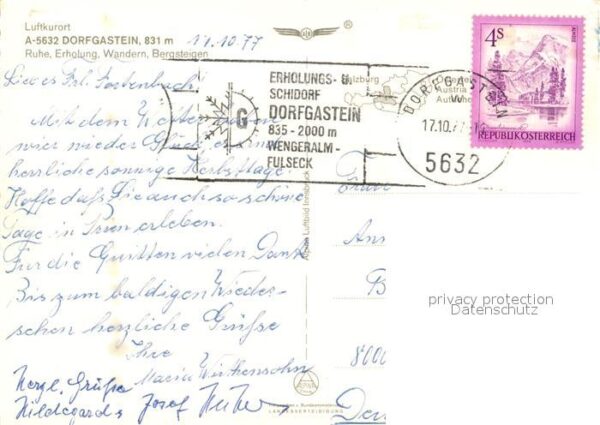 Luftkurort
A-5632 DORFGASTEIN, 831 m
Ruhe, Erholung, Wandern, Bergsteigen
17.10.77
Liebes Frl.
Mit dem Wetter haben
wir wieder Glück, es sind
herrliche sonnige Herbsttage.
Hoffe daß Sie auch so schöne
Tage in Ihren erleben.
Für die Quitten vielen Dank
Bis zum baldigen Wieder-
sehen herzliche Grüße
Ihre
Maria
Herzl. Grüße
Hildegard u. Josef
ERHOLUNGS- U.
SCHIDORF
DORFGASTEIN
835-2000 m
WENGERALM-
FULSECK
G
Salzburg
Austria
DORFGASTEIN
17.10.77
5632
4S
REPUBLIK ÖSTERREICH
Alpine Luftbild Innsbruck
Frau
8000
privacy protection
Datenschutz
LANDESVERTEIDIGUNG